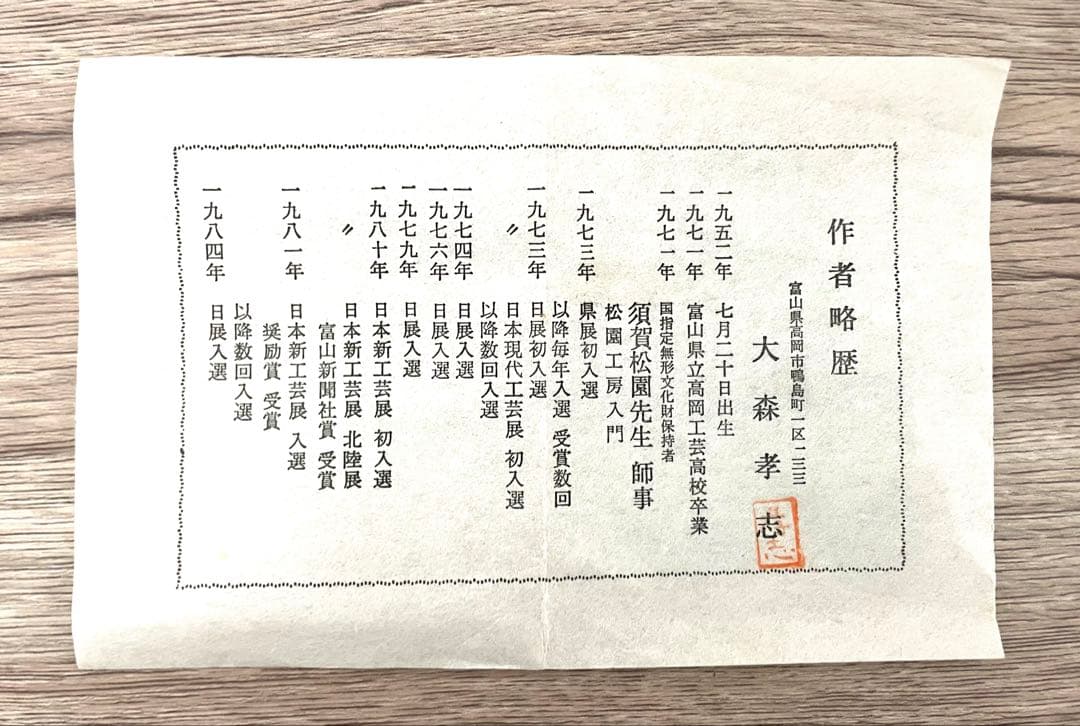 作者略歴
富山県高岡市鴨島町一区一三三
大森孝志
一九五二年 七月二十日出生
一九七一年 富山県立高岡工芸高校卒業
一九七一年 国指定無形文化財保持者
須賀松園先生 師事
松園工房入門
一九七三年 県展初入選
以降毎年入選 受賞数回
一九七三年 日展初入選
〃 日本現代工芸展 初入選
以降数回入選
一九七四年 日展入選
一九七六年 日展入選
一九七九年 日展入選
一九八十年 日本新工芸展 初入選
〃 日本新工芸展 北陸展
富山新聞社賞 受賞
一九八一年 日本新工芸展 入選
奨励賞 受賞
以降数回入選
一九八四年 日展入選